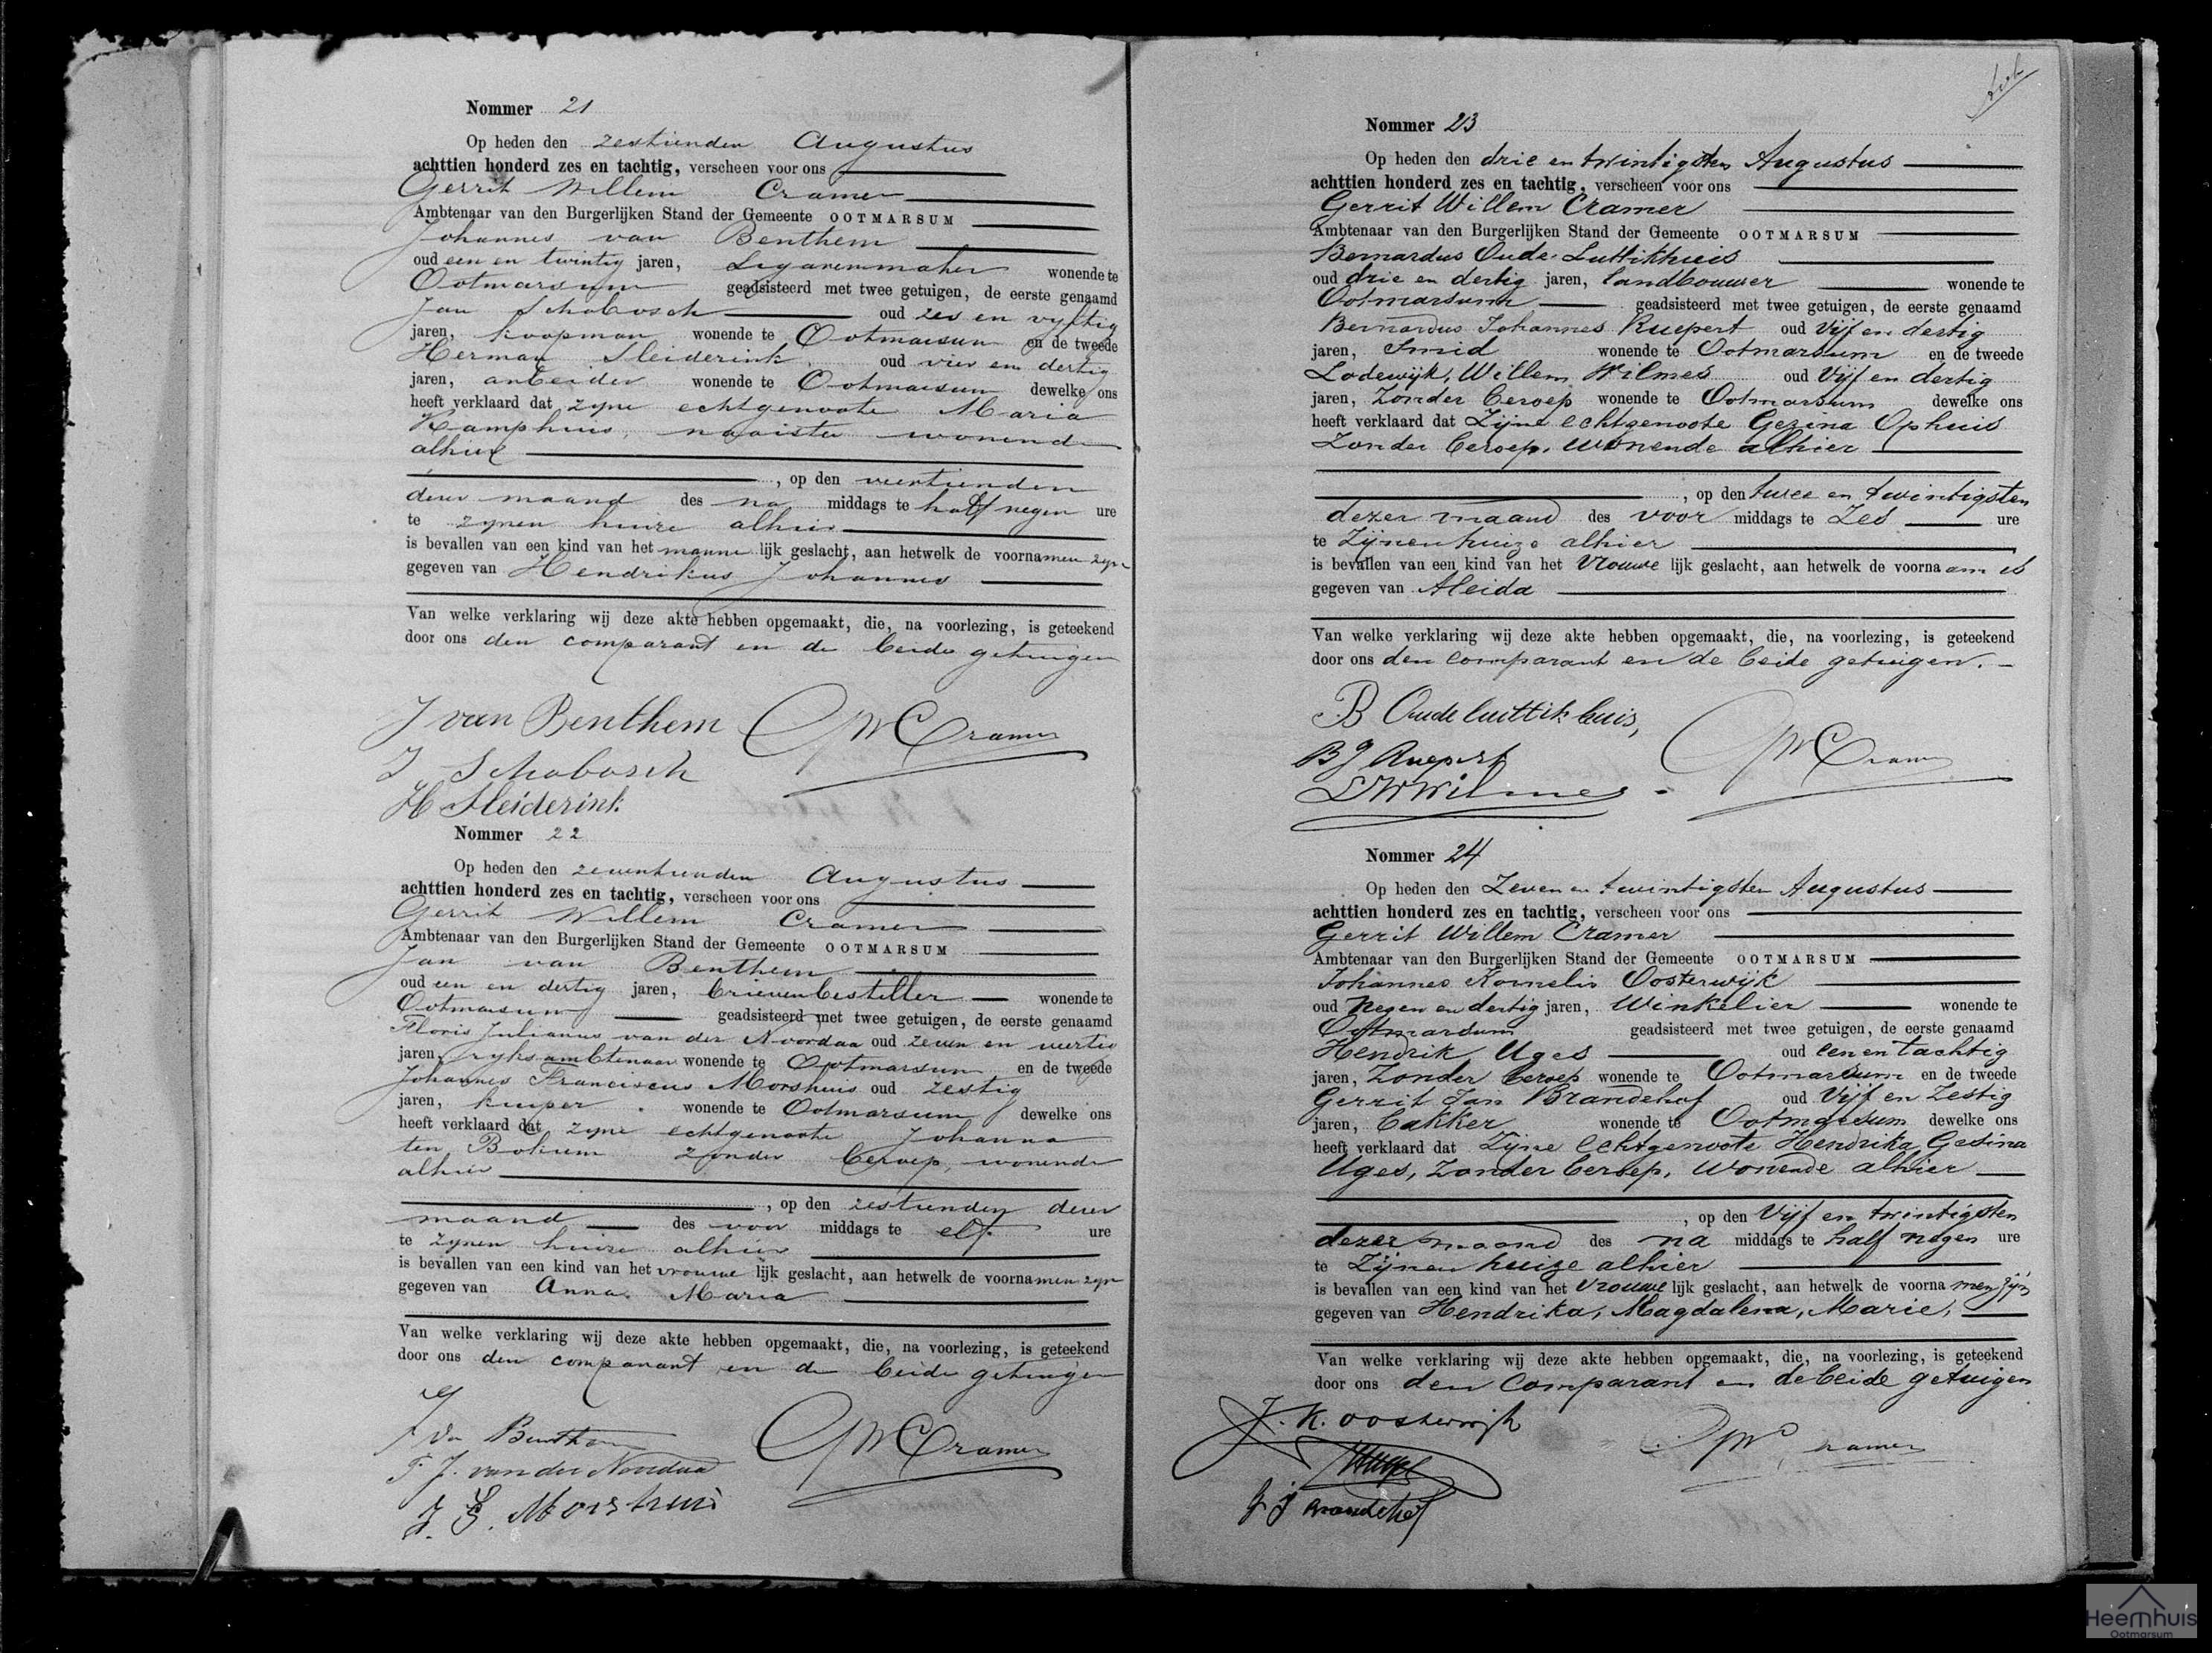 Nommer 21
Op heden den zestienden Augustus
achttien honderd zes en tachtig, verscheen voor ons
Gerrit Willem Cramer
Ambtenaar van den Burgerlijken Stand der Gemeente OOTMARSUM
Johannes van Benthem
oud een en twintig jaren, Sigarenmaker wonende te
Ootmarsum geadsisteerd met twee getuigen, de eerste genaamd
Jan Schabosch oud zes en vyftig
jaren, koopman wonende te Ootmarsum en de tweede
Herman Sleiderink oud vier en dertig
jaren, arbeider wonende te Ootmarsum dewelke ons
heeft verklaard dat zyne echtgenoote Maria
Kamphuis, naaister wonende
alhier
, op den veertienden
dezer maand des na middags te half negen ure
te zynen huize alhier
is bevallen van een kind van het manne lijk geslacht, aan hetwelk de voornamen zyn
gegeven van Hendrikus Johannes
Van welke verklaring wij deze akte hebben opgemaakt, die, na voorlezing, is geteekend
door ons den comparant en de beide getuigen
J van Benthem GWCramer
J Schabosch
H Sleiderink
Nommer 22
Op heden den zeventienden Augustus
achttien honderd zes en tachtig, verscheen voor ons
Gerrit Willem Cramer
Ambtenaar van den Burgerlijken Stand der Gemeente OOTMARSUM
Jan van Benthem
oud een en dertig jaren, brievenbesteller wonende te
Ootmarsum geadsisteerd met twee getuigen, de eerste genaamd
Floris Julianus van der Noordaa oud zeven en veertig
jaren, ryksambtenaar wonende te Ootmarsum en de tweede
Johannes Franciscus Morshuis oud zestig
jaren, kuiper wonende te Ootmarsum dewelke ons
heeft verklaard dat zyne echtgenoote Johanna
ten Bokum zonder beroep, wonende
alhier
, op den zestienden dezer
maand des voor middags te elf ure
te zynen huize alhier
is bevallen van een kind van het vrouwe lijk geslacht, aan hetwelk de voornamen zyn
gegeven van Anna Maria
Van welke verklaring wij deze akte hebben opgemaakt, die, na voorlezing, is geteekend
door ons den comparant en de beide getuigen
J van Benthem GWCramer
F. J. van der Noordaa
J. F. Morshuis
Nommer 23
Op heden den drie en twintigsten Augustus
achttien honderd zes en tachtig, verscheen voor ons
Gerrit Willem Cramer
Ambtenaar van den Burgerlijken Stand der Gemeente OOTMARSUM
Bernardus Oude Luttikhuis
oud drie en dertig jaren, landbouwer wonende te
Ootmarsum geadsisteerd met twee getuigen, de eerste genaamd
Bernardus Johannes Ruepert oud Vijf en dertig
jaren, Smid wonende te Ootmarsum en de tweede
Lodewijk, Willem Wilmes oud Vijf en dertig
jaren, Zonder beroep wonende te Ootmarsum dewelke ons
heeft verklaard dat Zijne echtgenoote Gezina Ophuis
Zonder beroep, wonende alhier
, op den twee en twintigsten
dezer maand des voor middags te Zes ure
te Zijnen huize alhier
is bevallen van een kind van het Vrouwe lijk geslacht, aan hetwelk de voorna am is
gegeven van Aleida
Van welke verklaring wij deze akte hebben opgemaakt, die, na voorlezing, is geteekend
door ons den comparant en de beide getuigen.
B Oude luttik huis,
BJ Ruepert GWCramer
LWWilmes
Nommer 24
Op heden den Zeven en twintigsten Augustus
achttien honderd zes en tachtig, verscheen voor ons
Gerrit Willem Cramer
Ambtenaar van den Burgerlijken Stand der Gemeente OOTMARSUM
Johannes Kornelis Oosterwijk
oud Negen en dertig jaren, Winkelier wonende te
Ootmarsum geadsisteerd met twee getuigen, de eerste genaamd
Hendrik Uges oud een en tachtig
jaren, Zonder beroep wonende te Ootmarsum en de tweede
Gerrit Jan Brandehof oud Vijf en Zestig
jaren, bakker wonende te Ootmarsum dewelke ons
heeft verklaard dat Zijne echtgenoote Hendrika Gesina
Uges, Zonder beroep, Wonende alhier
, op den Vijf en twintigsten
dezer maand des na middags te half negen ure
te Zijnen huize alhier
is bevallen van een kind van het Vrouwe lijk geslacht, aan hetwelk de voorna men zijn
gegeven van Hendrika, Magdalena, Marie,
Van welke verklaring wij deze akte hebben opgemaakt, die, na voorlezing, is geteekend
door ons den Comparant en de beide getuigen
J. K. oosterwijk GWCramer
HUges
G J Brandehof
Heemhuis
Ootmarsum